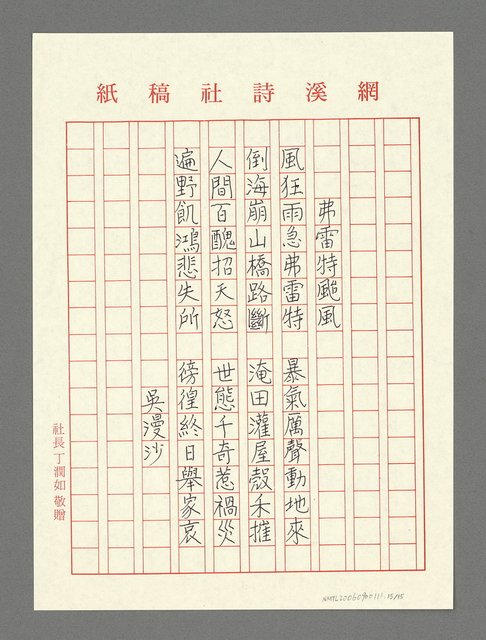 網溪詩社稿紙
弗雷特颱風
風狂雨急弗雷特　暴氣厲聲動地來
倒海崩山橋路斷　淹田灌屋穀禾摧
人間百醜招天怒　世態千奇惹禍災
遍野飢鴻悲失所　徬徨終日舉家哀
吳漫沙
社長丁潤如敬贈